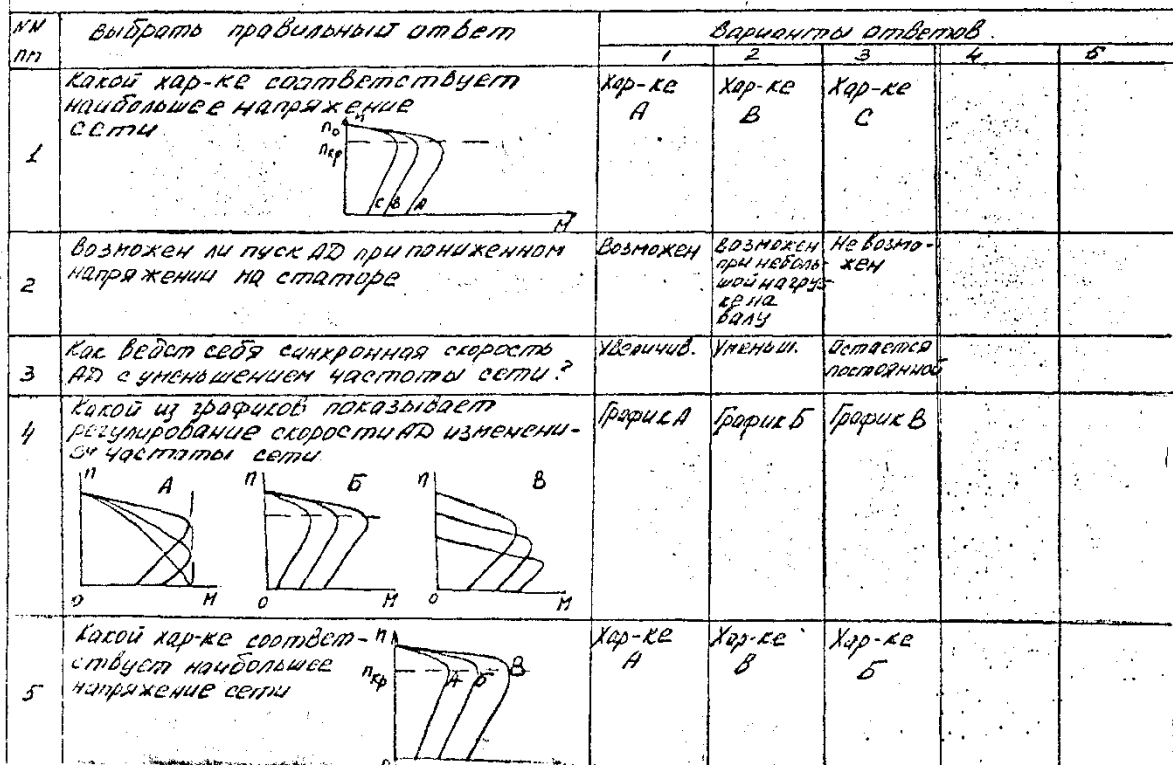 NN пп
выбрать правильный ответ
варианты ответов.
1 2 3 4 5
1
Какой хар-ке соответствует
наибольшее напряжение
сети
n
n₀
nкр
C B A
M
Хар-ке А
Хар-ке В
Хар-ке С
2
Возможен ли пуск АД при пониженном
напряжении на статоре
Возможен
Возможен
при неболь-
шой нагруз-
ке на
валу
Не возмо-
жен
3
Как ведет себя синхронная скорость
АД с уменьшением частоты сети?
Увеличив.
Уменьш.
Остается
постоянной
4
Какой из графиков показывает
регулирование скорости АД изменени-
ем частоты сети
n А
0 M
n Б
0 M
n В
0 M
График А
График Б
График В
5
Какой хар-ке соответ-
ствует наибольшее
напряжение сети
n
nкр
А Б В
0
Хар-ке А
Хар-ке В
Хар-ке Б